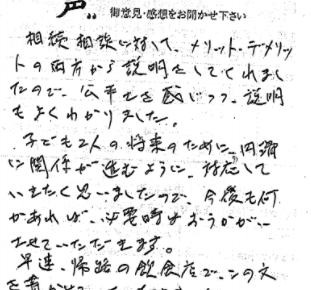 声
御意見・感想をお聞かせ下さい
相続相談に対して、メリット・デメリッ
トの両方から説明をしてくれまし
たので、公平さを感じつつ、説明
もよくわかりました。
子ども2人の将来のために、円満
に関係が進むように、対応して
いきたく思いましたので、今後も何
かあれば、必要時はおうかがい
させていただきます。
早速、帰路の飲食店で、この文